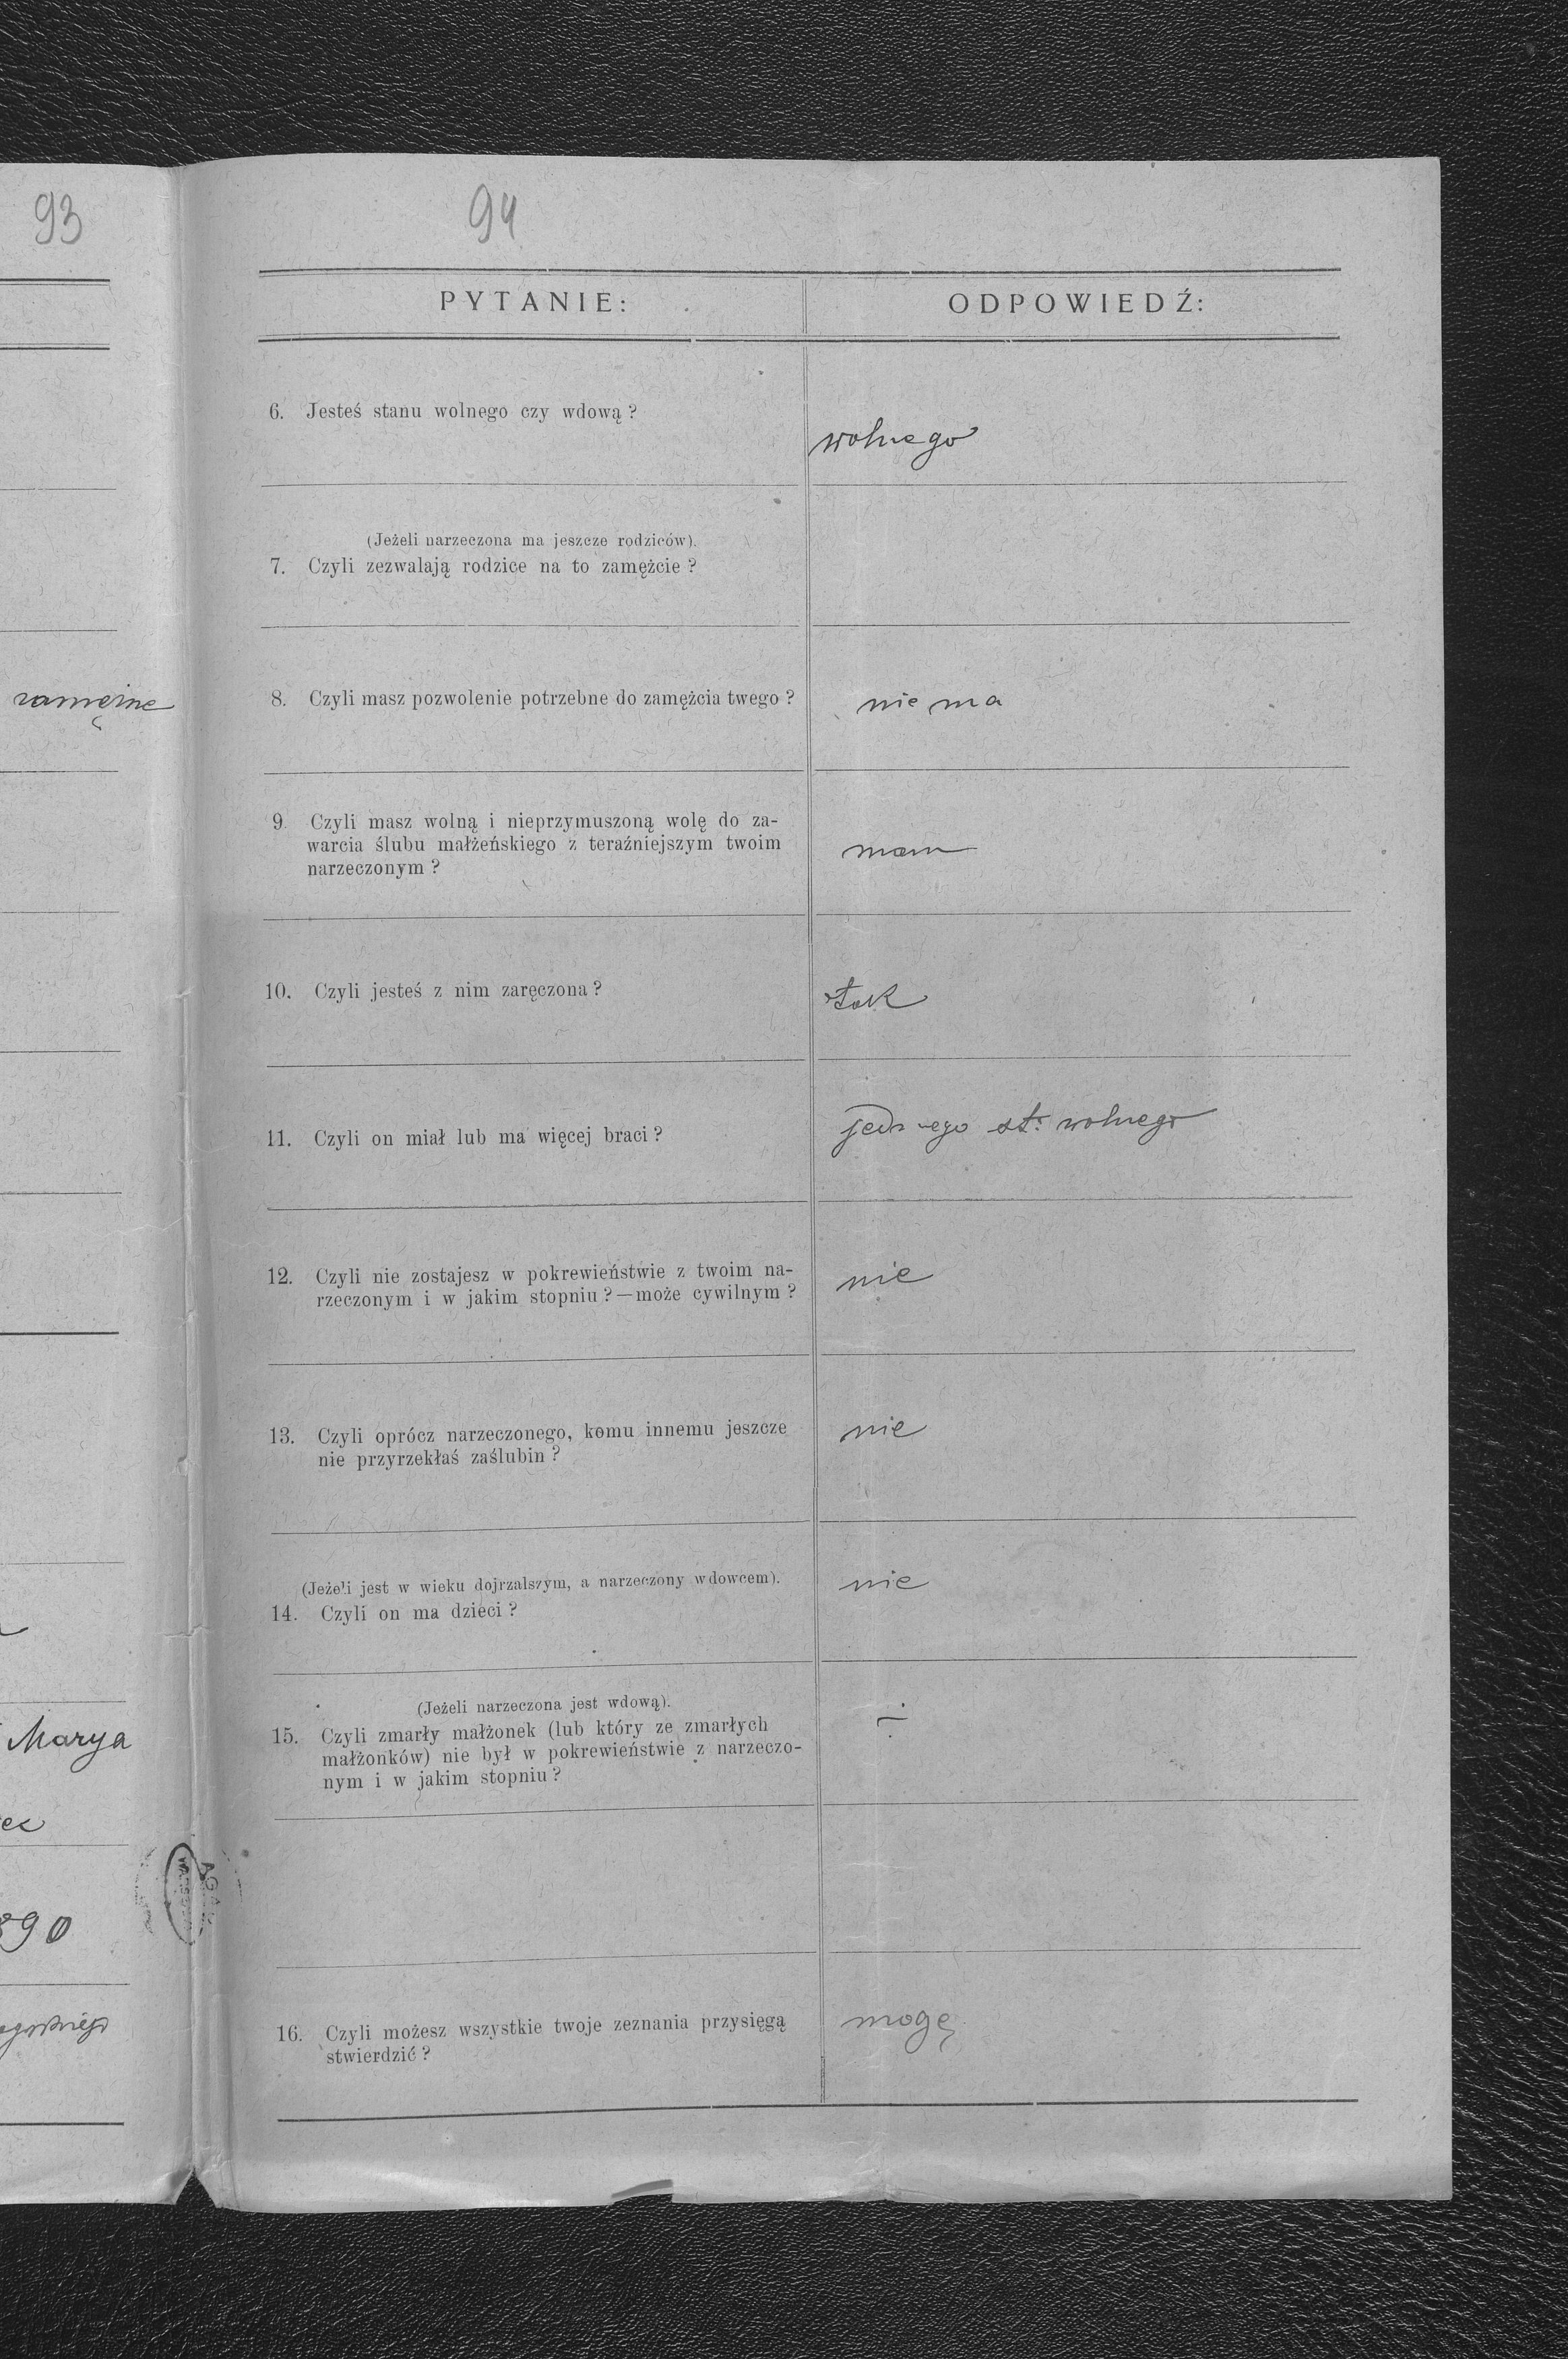 93
zamężne
Marya
890
94
PYTANIE:
ODPOWIEDŹ:
6. Jesteś stanu wolnego czy wdową?
wolnego
(Jeżeli narzeczona ma jeszcze rodziców).
7. Czyli zezwalają rodzice na to zamężcie?
8. Czyli masz pozwolenie potrzebne do zamężcia twego?
nie ma
9. Czyli masz wolną i nieprzymuszoną wolę do za-
warcia ślubu małżeńskiego z teraźniejszym twoim
narzeczonym?
mam
10. Czyli jesteś z nim zaręczona?
tak
11. Czyli on miał lub ma więcej braci?
jednego st. wolnego
12. Czyli nie zostajesz w pokrewieństwie z twoim na-
rzeczonym i w jakim stopniu?—może cywilnym?
nie
13. Czyli oprócz narzeczonego, komu innemu jeszcze
nie przyrzekłaś zaślubin?
nie
(Jeżeli jest w wieku dojrzalszym, a narzeczony wdowcem).
14. Czyli on ma dzieci?
nie
(Jeżeli narzeczona jest wdową).
15. Czyli zmarły małżonek (lub który ze zmarłych
małżonków) nie był w pokrewieństwie z narzeczo-
nym i w jakim stopniu?
÷
16. Czyli możesz wszystkie twoje zeznania przysięgą
stwierdzić?
mogę